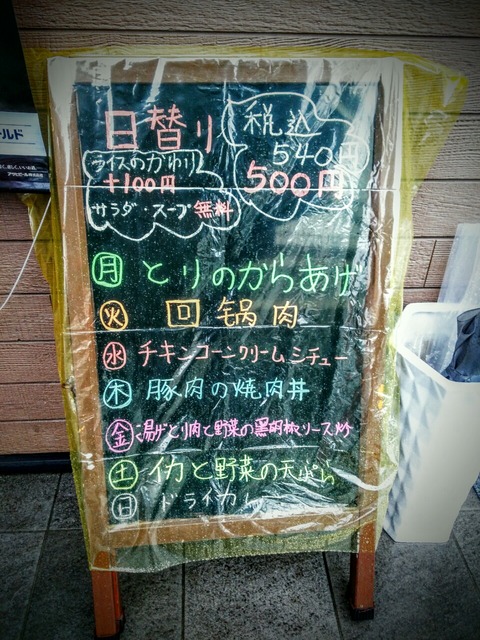 日替り
税込
540円
500円
ライスのかわり
+100円
サラダ・スープ無料
月 とりのからあげ
火 回锅肉
水 チキンコーンクリームシチュー
木 豚肉の焼肉丼
金 湯げとり肉と野菜の黒胡椒ソース炒
土 イカと野菜の天ぷら
日 ドライカレ
ールド
アサヒビール株式会社